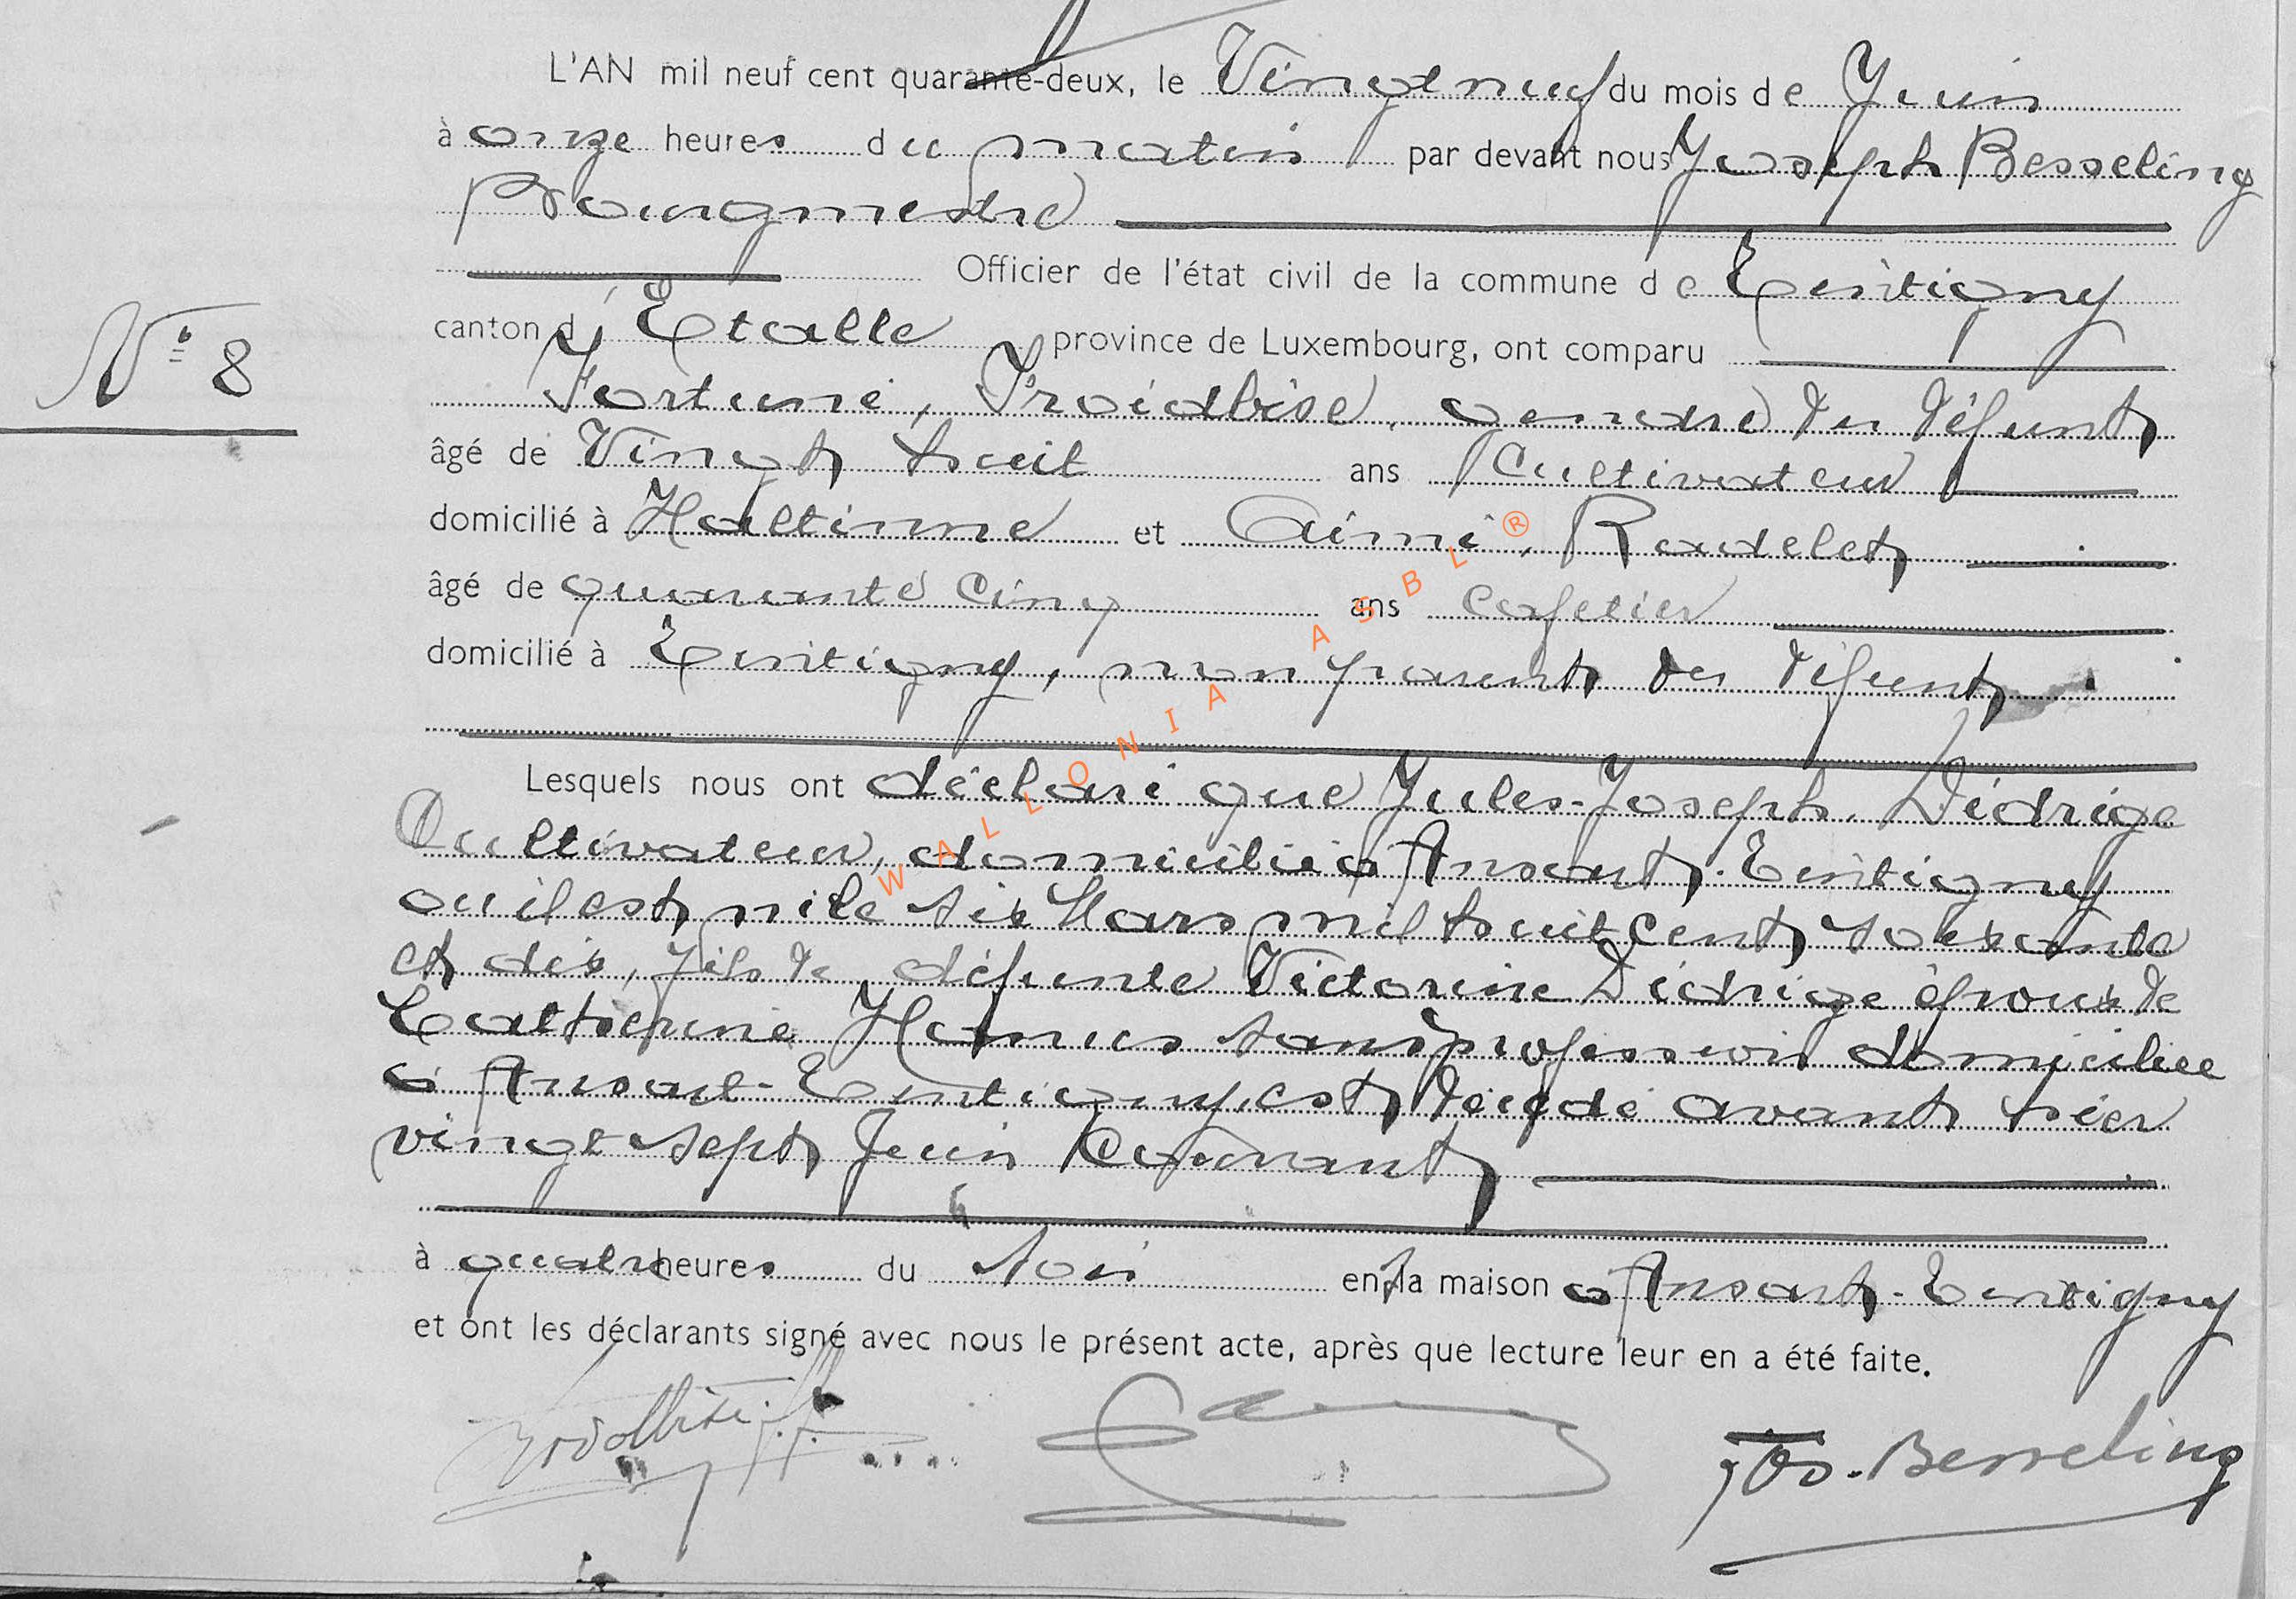 L'AN mil neuf cent quarante-deux, le Vingt neuf du mois de Juin
à onze heures du matin par devant nous Joseph Besseling
Bourgmestre
Officier de l'état civil de la commune de Tintigny
N° 8
canton d' Etalle province de Luxembourg, ont comparu
Fortuné, Froidbise, gendre du défunt
âgé de Vingt huit ans Cultivateur
domicilié à Haltinne et Aimé, Rodelet
âgé de quarante cinq ans Cafetier
domicilié à Tintigny, non parent du défunt
Lesquels nous ont déclaré que Jules-Joseph, Didrige
Cultivateur, domicilié à Ansart-Tintigny
ou il est né le six Mars mil huit cent soixante
et dix, fils de défunte Victorine Didrige époux de
Catherine Hamus sans profession domiciliée
à Ansart-Tintigny, est décédé avant hier
vingt sept Juin Courant
à quatre heures du soir en sa maison à Ansart-Tintigny
et ont les déclarants signé avec nous le présent acte, après que lecture leur en a été faite.
Froidbise f.f. Jos. Besseling
WALLONIA ASBL ®